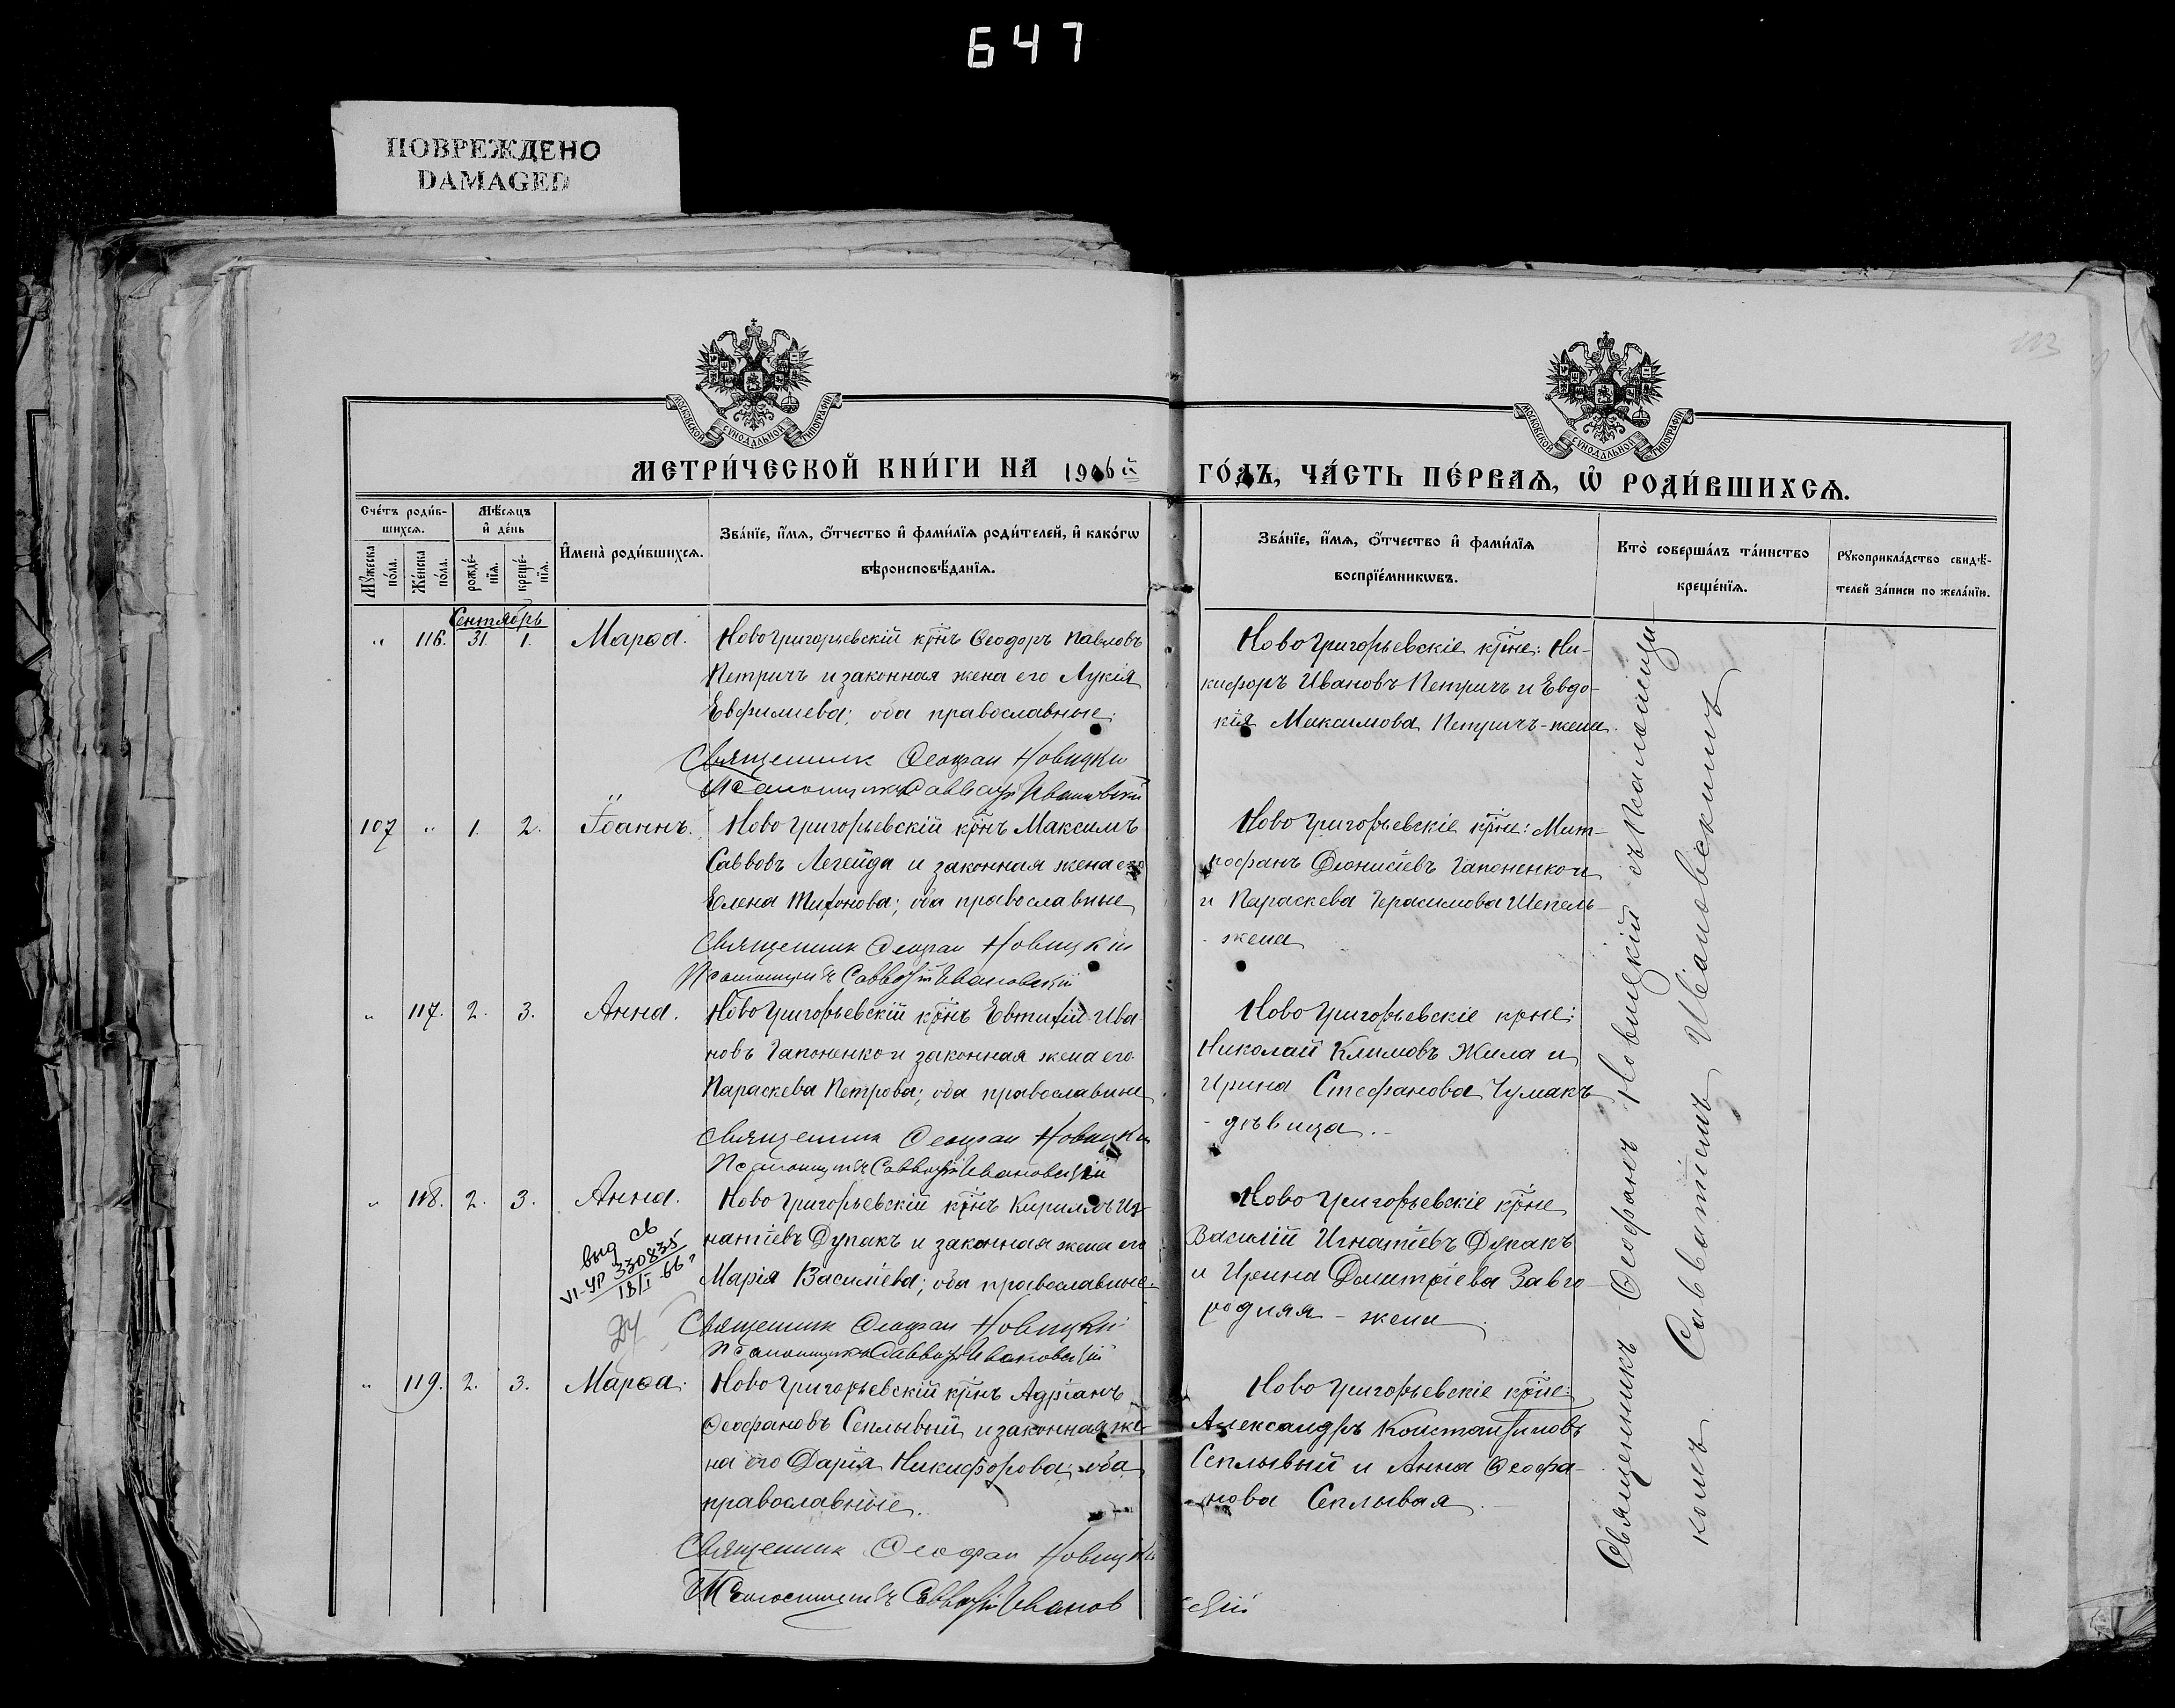 647
ПОВРЕЖДЕНО
DAMAGED
113
МОСКОВСКОЙ СѴНОДАЛЬНОЙ ТИПОГРАФІИ
МОСКОВСКОЙ СѴНОДАЛЬНОЙ ТИПОГРАФІИ
МЕТРИ́ЧЕСКОЙ КНИ́ГИ НА 1906й
ГО́ДЪ, ЧА́СТЬ ПЕ́РВАѦ, Ѡ҆ РОДИ́ВШИХСѦ.
Сче́тъ роди́в-
шихсѧ.
Мꙋ́жеска по́ла.
Же́нска по́ла.
Мѣ́сѧцъ
и҆ де́нь
рожде́-
нїѧ.
креще́-
нїѧ.
И҆мена̀ роди́вшихсѧ.
Зва́нїе, и҆́мѧ, ѻ҆́тчество и҆ фами́лїѧ роди́телей, и҆ како́гѡ
вѣроисповѣ́данїѧ.
Зва́нїе, и҆́мѧ, ѻ҆́тчество и҆ фами́лїѧ
воспрїе́мникѡвъ.
Кто̀ соверша́лъ та́инство
креще́нїѧ.
Рꙋкоприкла́дство свидѣ́-
телей за́писи по жела́нїю.
Сентябрь
" 116. 31. 1. Марѳа. Новогригорьевскій крнъ Ѳеодоръ Павловъ
Петричъ и законная жена его Лукія
Евфилиева; оба православные.
Священник Ѳеофан Новицкій
Псаломщикъ Савватій Ивановскій
Новогригорьевскіе крне: Ни-
кифоръ Ивановъ Петричъ и Евдо-
кія Максимова Петричъ-жена.
107 " 1. 2. Іоаннъ. Новогригорьевскій крнъ Максимъ
Саввовъ Легейда и законная жена его
Елена Тихонова; оба православные
Священник Ѳеофан Новицкій
Псаломщикъ Савватій Ивановскій
Новогригорьевскіе крне: Мит-
рофанъ Діонисіевъ Гапоненко и
и Параскева Герасимова Шепель-
- жена
" 117. 2. 3. Анна. Новогригорьевскій крнъ Евтихій Ива
новъ Гапоненко и законная жена его
Параскева Петрова; оба православные
Священник Ѳеофан Новицкій
Псаломщикъ Савватій Ивановскій
Новогригорьевскіе крне:
Николай Климовъ Жила и
Ирина Стефанова Чумакъ
- дѣвица.
" 118. 2. 3. Анна. Новогригорьевскій крнъ Кириллъ Иг-
натіевъ Дупакъ и законная жена его
Марія Василіева; оба православные.
Священник Ѳеофан Новицкій
Псаломщикъ Савватій Ивановскій
выд св
VI-УР 330835
18/I 66г
Новогригорьевскіе крне
Василій Игнатіевъ Дупакъ
и Ирина Димитріева Завго-
родняя - жена
" 119. 2. 3. Марѳа. Новогригорьевскій крнъ Адріанъ
Ѳеофановъ Сеплывый и законная же-
на его Дарія Никифорова; оба
православные.
Священник Ѳеофан Новицкій
Псаломщикъ Савватій Ивановскій
Новогригорьевскіе крне:
Александръ Константиновъ
Сеплывый и Анна Ѳеофа-
нова Сеплывая.
Священникъ Ѳеофанъ Новицкій съ Псаломщи-
комъ Савватіемъ Ивановскимъ